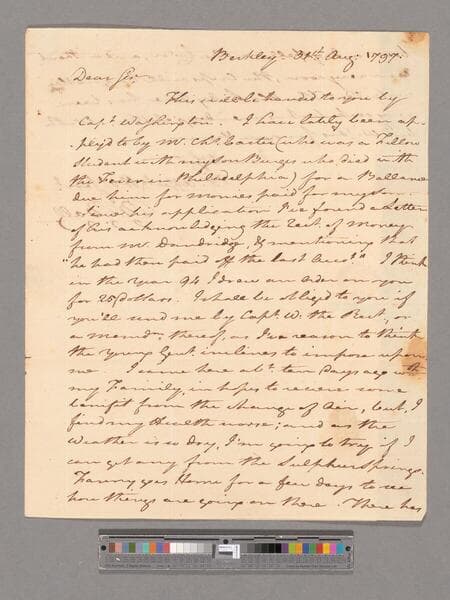 Berkley 31st Augt 1797.
Dear Sir
This will be handed to you by
Capt. Washington. I have lately been ap-
-plyed to by Mr. Chs. Carter (who was a Fellow
Student with my son Burges who died with
the Fever in Philadelphia) for a Ballance
due him for monies paid for my son
Since his application I've found a Letter
of his acknowledging the Rect. of Money
from Mr. Dandridge, & mentioning that
"he had then paid off the last Acct." I think
in the year 94 I drew an order on you
for 25 Dollars. I shall be obliged to you if
you'll send me by Capt. W. the Rect, or
a memdm. thereof, as I've reason to think
the Young Gent. inclines to impose upon
me. I came here abt. ten days ago with
my Family, in hopes to receive some
benefit from the change of Air, but, I
find my Health worse; and as the
Weather is so dry, I'm going to try if I
can get any from the Sulphur Springs.
Fanny goes Home for a few days to see
how things are going on there. There has